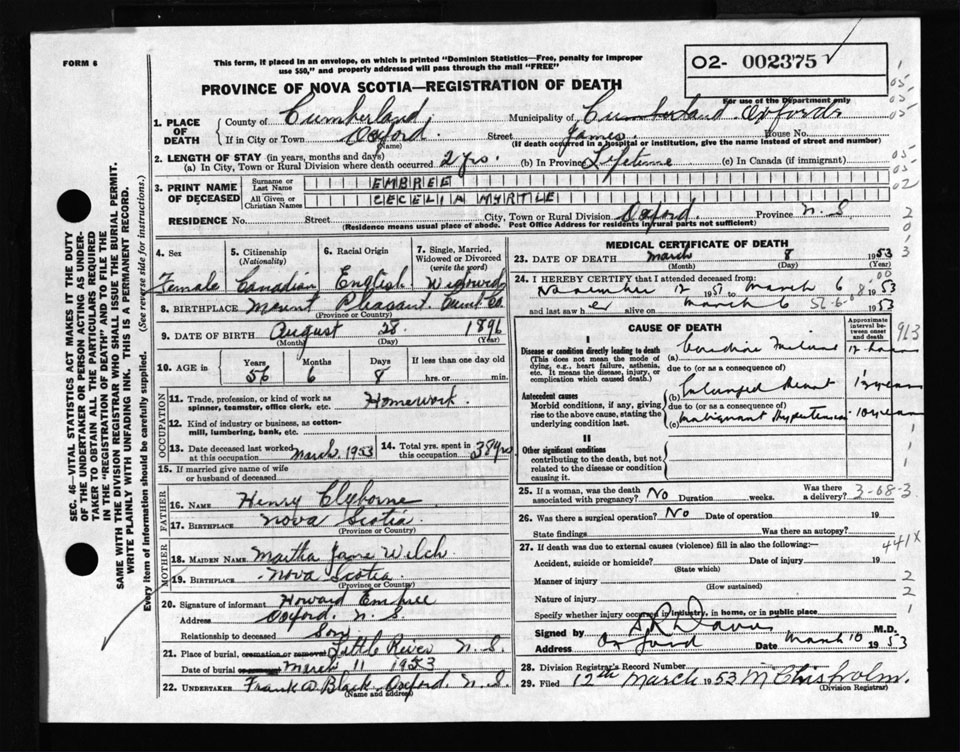 FORM 6
This form, if placed in an envelope, on which is printed "Dominion Statistics—Free, penalty for improper
use $50," and properly addressed will pass through the mail "FREE"
O2- 002375
PROVINCE OF NOVA SCOTIA—REGISTRATION OF DEATH
For use of the Department only
1. PLACE OF DEATH
County of Cumberland Municipality of Cumberland Oxford
If in City or Town Oxford (Name) Street James House No.
(If death occurred in a hospital or institution, give the name instead of street and number)
2. LENGTH OF STAY (in years, months and days)
(a) In City, Town or Rural Division where death occurred 2 yrs. (b) In Province Lifetime (c) In Canada (if immigrant)
3. PRINT NAME OF DECEASED
Surname or Last Name EMBREE
All Given or Christian Names CECELIA MYRTLE
RESIDENCE No. Street City, Town or Rural Division Oxford. Province N. S
(Residence means usual place of abode. Post Office Address for residents in rural parts not sufficient)
4. Sex 5. Citizenship (Nationality) 6. Racial Origin 7. Single, Married, Widowed or Divorced (write the word)
Female Canadian English Widowed
8. BIRTHPLACE Mount Pleasant. Cumb. Co.
(Province or Country)
9. DATE OF BIRTH August 28 1896
(Month) (Day) (Year)
10. AGE in Years Months Days If less than one day old
56 6 8 hrs. or min.
OCCUPATION
11. Trade, profession, or kind of work as spinner, teamster, office clerk, etc. Homework.
12. Kind of industry or business, as cotton-mill, lumbering, bank, etc.
13. Date deceased last worked at this occupation March 1953 14. Total yrs. spent in this occupation 38 yrs
15. If married give name of wife or husband of deceased
FATHER
16. NAME Henry Clyborne
17. BIRTHPLACE Nova Scotia
(Province or Country)
MOTHER
18. MAIDEN NAME Martha Jane Welch.
19. BIRTHPLACE Nova Scotia.
(Province or Country)
20. Signature of informant Howard Embree
Address Oxford. N. S.
Relationship to deceased Son
21. Place of burial, cremation or removal Little River N. S.
Date of burial or removal March 11 1953
22. UNDERTAKER Frank A Black. Oxford. N. S.
(Name and address)
MEDICAL CERTIFICATE OF DEATH
23. DATE OF DEATH March 8 1953
(Month) (Day)
24. I HEREBY CERTIFY that I attended deceased from:
March 6 1953
and last saw her alive on March 6 1953
CAUSE OF DEATH
Approximate interval between onset and death
I
Disease or condition directly leading to death
(This does not mean the mode of dying, e.g., heart failure, asthenia, etc. It means the disease, injury, or complication which caused death.)
(a)
due to (or as a consequence of)
Antecedent causes
Morbid conditions, if any, giving rise to the above cause, stating the underlying condition last.
(b) Enlarged Heart
due to (or as a consequence of)
(c) Malignant Hypertension 10 years
II
Other significant conditions
contributing to the death, but not related to the disease or condition causing it.
25. If a woman, was the death associated with pregnancy? No Duration weeks. Was there a delivery? 3-08-3
26. Was there a surgical operation? No Date of operation 19
State findings Was there an autopsy?
441X
27. If death was due to external causes (violence) fill in also the following:
Accident, suicide or homicide? Date of injury 19
(State which)
Manner of injury
(How sustained)
Nature of injury
Specify whether injury occurred in industry, in home, or in public place
Signed by M.D.
Address Oxford Date March 10 1953
28. Division Registrar's Record Number
29. Filed 12th March 1953 M Chisholm.
(Division Registrar)
SEC. 46—VITAL STATISTICS ACT MAKES IT THE DUTY
OF THE UNDERTAKER OR PERSON ACTING AS UNDER-
TAKER TO OBTAIN ALL THE PARTICULARS REQUIRED
IN THE "REGISTRATION OF DEATH" AND TO FILE THE
SAME WITH THE DIVISION REGISTRAR WHO SHALL ISSUE THE BURIAL PERMIT.
WRITE PLAINLY WITH UNFADING INK. THIS IS A PERMANENT RECORD.
Every item of information should be carefully supplied. (See reverse side for instructions.)